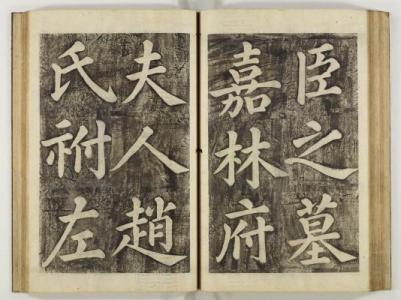 臣之墓
嘉林府
夫人趙
氏祔左